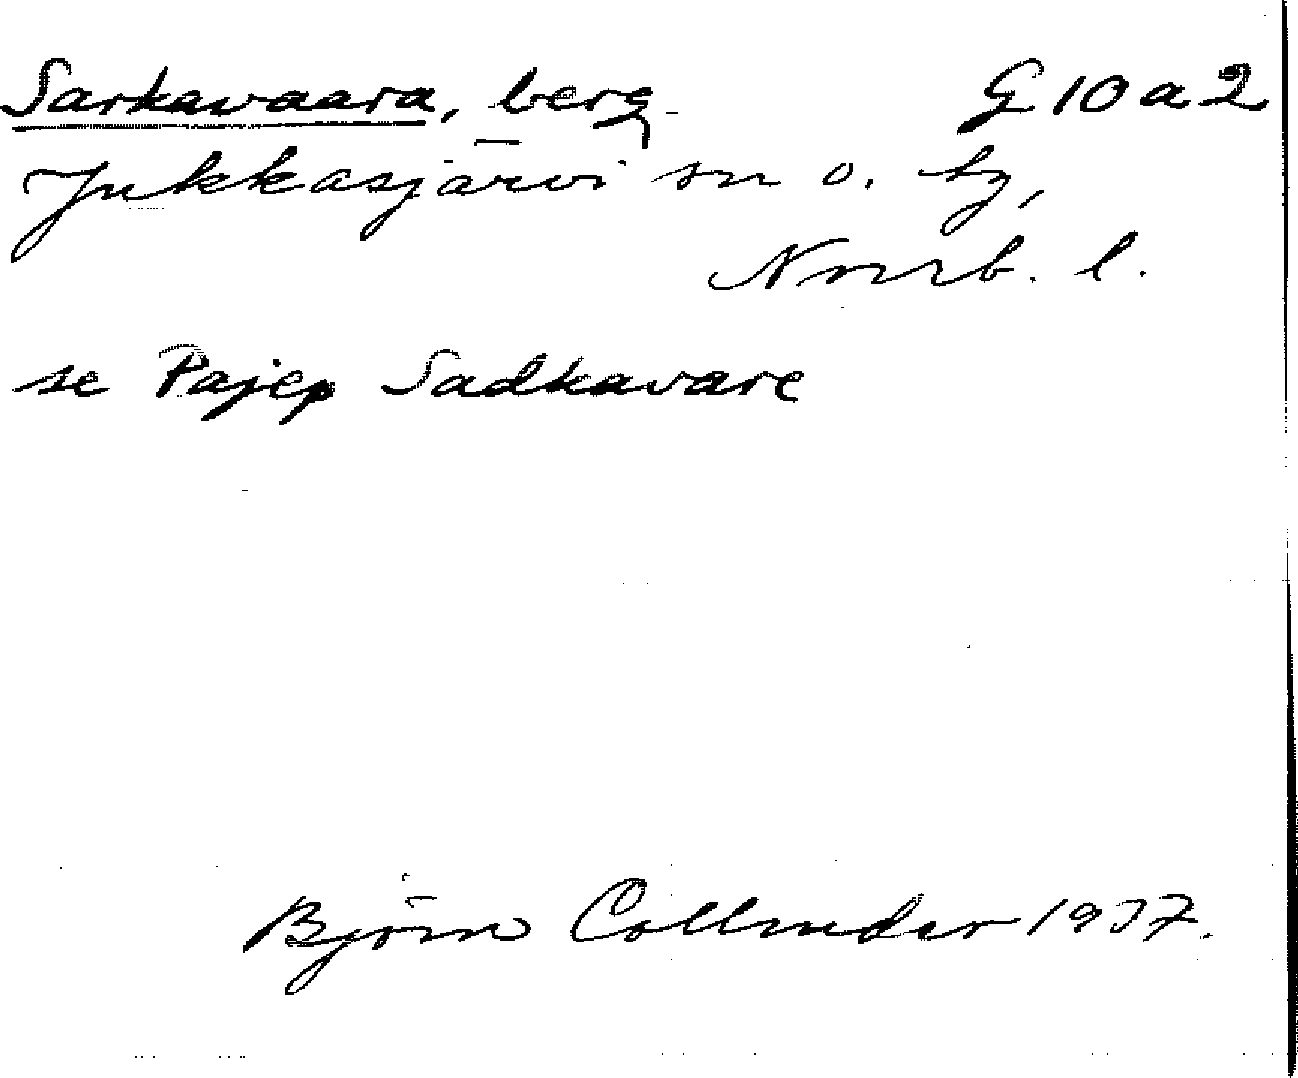 Sarkavaara, berg G 10 a 2
Jukkasjärvi sn o. by,
Norrb. l.
se Pajep Sadkavare
Björn Collinder 1937.